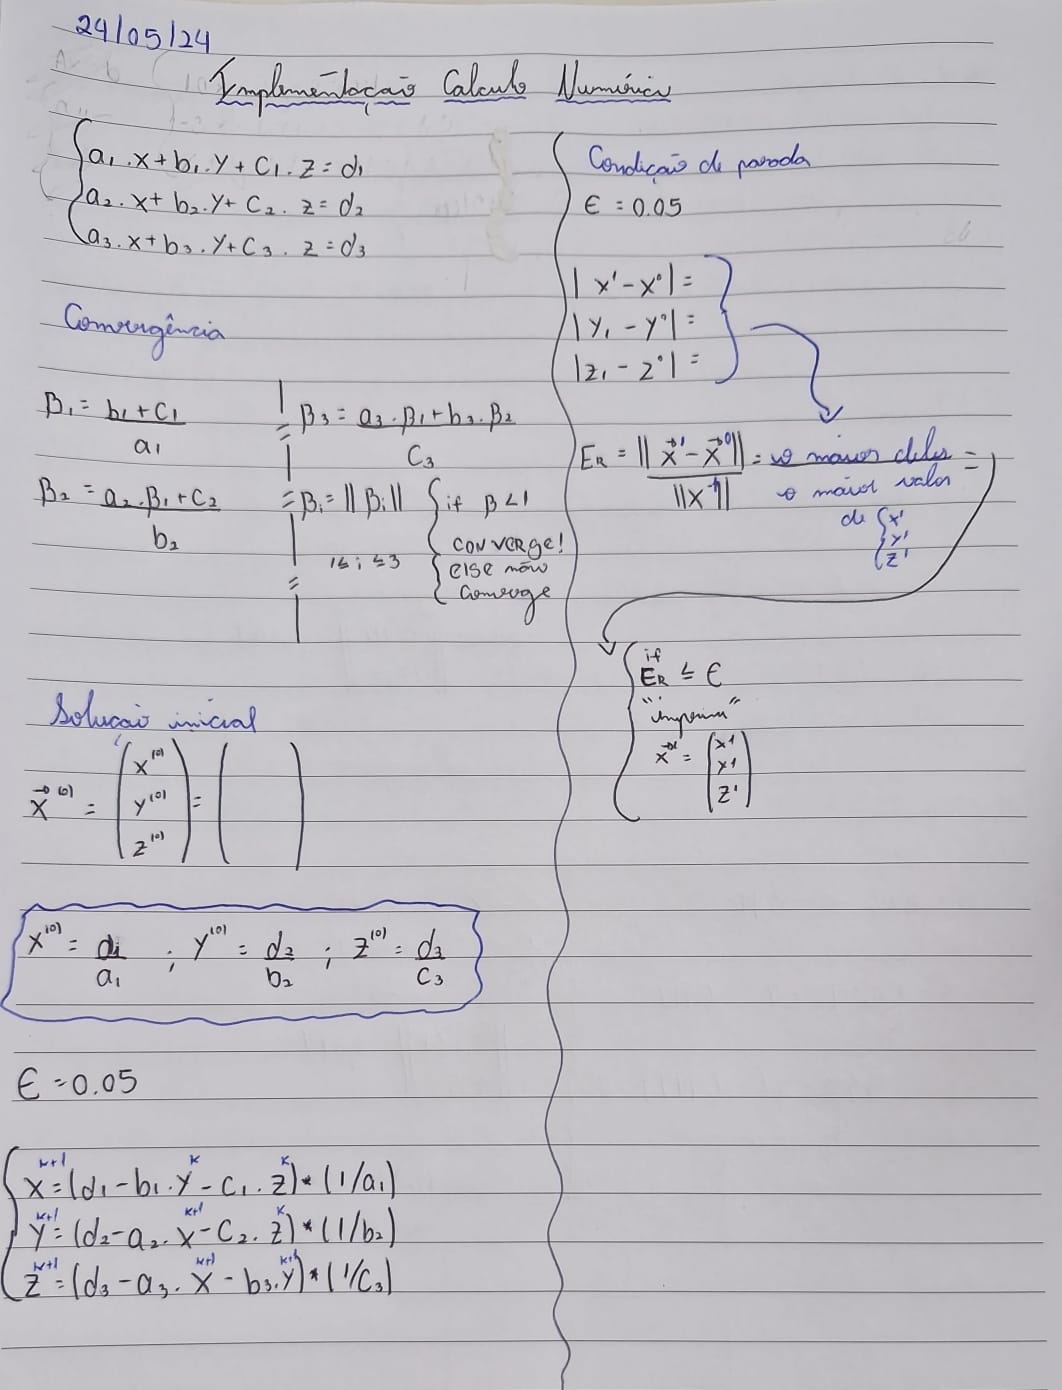 24/05/24
Implementação Calculo Numérico
a₁.x+b₁.y+c₁.z=d₁
a₂.x+b₂.y+c₂.z=d₂
a₃.x+b₃.y+c₃.z=d₃
Convergência
β₁ = (b₁+c₁)/a₁
β₂ = (a₂.β₁+c₂)/b₂
β₃ = (a₃.β₁+b₃.β₂)/c₃
βᵢ = ||βᵢ||
1≤i≤3
if β<1
converge!
else não
converge
Solução inicial
x⃗⁽⁰⁾ = (x⁽⁰⁾ y⁽⁰⁾ z⁽⁰⁾) = ( )
x⁽⁰⁾ = d₁/a₁ ; y⁽⁰⁾ = d₂/b₂ ; z⁽⁰⁾ = d₃/c₃
ϵ = 0.05
xᵏ⁺¹=(d₁-b₁.yᵏ-c₁.zᵏ)*(1/a₁)
yᵏ⁺¹=(d₂-a₂.xᵏ⁺¹-c₂.zᵏ)*(1/b₂)
zᵏ⁺¹=(d₃-a₃.xᵏ⁺¹-b₃.yᵏ⁺¹)*(1/c₃)
Condição de parada
ϵ = 0.05
|x'-x⁰| =
|y₁-y⁰| =
|z₁-z⁰| =
E_R = ||x⃗¹-x⃗⁰||/||x¹|| = o maior deles / o maior valor =
de { x'
y'
z'
if
E_R ≤ ϵ
"imprima"
x⃗¹ = (x¹
y¹
z¹)